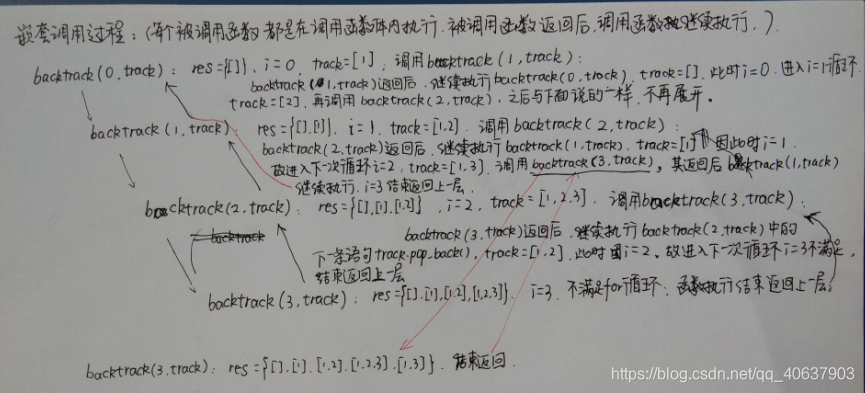 嵌套调用过程：(每个被调用函数都是在调用函数体内执行.被调用函数返回后,调用函数继续执行.).
backtrack(0,track): res={[]}, i=0, track=[1], 调用backtrack(1,track):
backtrack(1,track)返回后.继续执行backtrack(0,track). track=[].此时i=0.进入i=1循环.
track=[2],再调用backtrack(2,track),之后与下面说的一样,不再展开。
backtrack(1,track): res={[],[1]}, i=1, track=[1,2]. 调用backtrack(2,track):
backtrack(2,track)返回后.继续执行backtrack(1,track). track=[1] 因此时i=1.
故进入下一次循环i=2, track=[1,3].调用backtrack(3,track), 其返回后backtrack(1,track)
继续执行.i=3结束返回上一层.
backtrack(2,track): res={[],[1],[1,2]}, i=2, track=[1,2,3]. 调用backtrack(3,track):
backtrack
backtrack(3,track)返回后.继续执行backtrack(2,track)中的
下一条语句track.pop_back(), track=[1,2].此时因i=2。故进入下一次循环i=3不满足,
结束返回上一层
backtrack(3,track): res={[],[1],[1,2],[1,2,3]}. i=3.不满足for循环;函数执行结束返回上一层;
backtrack(3,track): res={[].[1].[1,2].[1,2,3].[1,3]}. 结束返回.
https://blog.csdn.net/qq_40637903